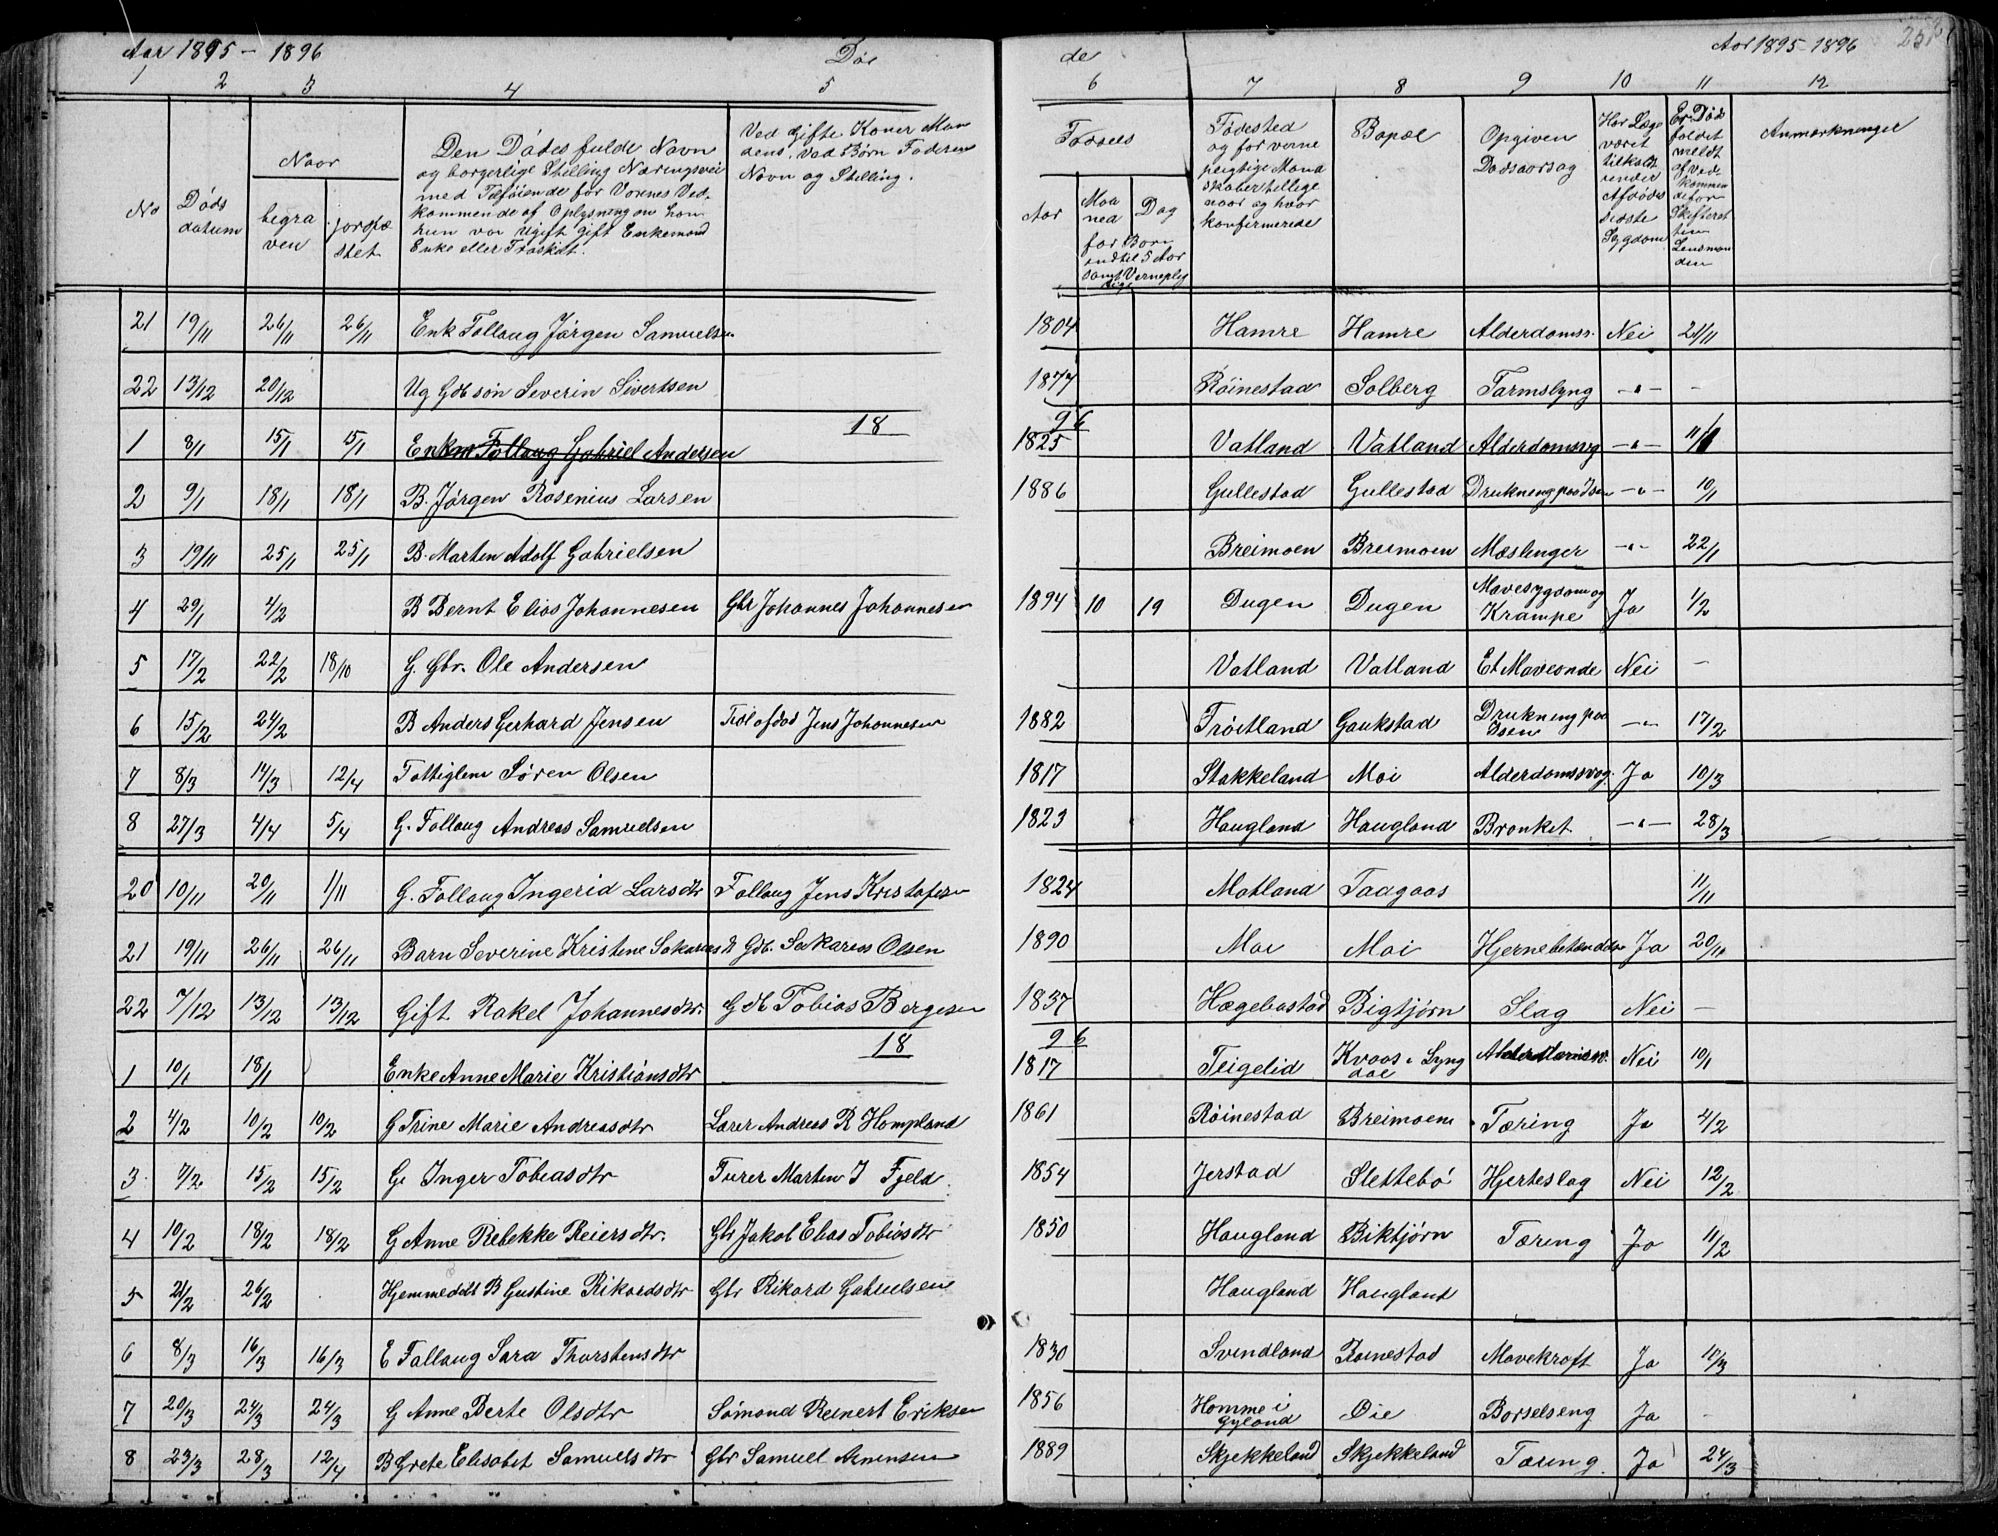 Aar 1895 - 1896 Dø de Aar 1895-1896 252
1 2 3 4 5 6 7 8 9 10 11 12
No
Døds datum
Naar
begra ven
jordfæ stet
Den Dødes fulde Navn
og borgerlige Stilling Næringsvei
med Tilføiende for Voxnes Ved-
kommende af Oplysning om han
hun var Ugift Gift Enkemand
Enke eller Fraskilt.
Ved Gifte Koner Man
dens, Ved Børn Faderens
Navn og Stilling.
Fødsels
Aar
Maa ned
Dag
for Børn
indtil 5 Aar
samt Værneplig
tige
Fødested
og for værne
pligtige Mand
skaber tillige
naar og hvor
konfirmerede
Bopæl
Opgiven
Dødsaarsag
Har Læge
været
tilkaldt
under
Afdødes
sidste
Sygdom
Er Døds
faldet
meldt
af Ved
kommen
de for
Skifteret
ten
Lensman
den
Anmærkninger
21 19/11 26/11 26/11 Enk Follaug Jørgen Samuelsen 1804 Hamre Hamre Alderdomss. Nei 21/11
22 13/12 20/12 Ug Gdb søn Severin Sivertsen 1877 Røinestad Solberg Tarmslyng -"- -
18 96
1 8/1 15/1 15/1 Enkm Follaug Gabriel Andersen 1825 Vatland Vatland Alderdomssvg -"- 11/1
2 9/1 18/1 18/1 B. Jørgen Rosenius Larsen 1886 Gullestad Gullestad Drukning paa Isen -"- 10/1
3 19/11 25/1 25/1 B. Marten Adolf Gabrielsen Breimoen Breimoen Mæslinger -"- 22/1
4 29/1 4/2 B Bernt Elias Johannesen Gbr Johannes Johannesen 1894 10 19 Dugen Dugen Mavesygdom og Krampe Ja 1/2
5 17/2 22/2 18/10 G. Gbr. Ole Andersen Vatland Vatland Et Maveonde Nei -
6 15/2 24/2 B Anders Gerhard Jensen Jens Johannesen 1882 Trøitland Gaukstad Drukning paa Isen -"- 17/2
7 8/3 14/3 12/4 Fattiglem Søren Olsen 1817 Stakkeland Moi Alderdomssvag. Ja 10/3
8 27/3 4/4 5/4 G. Follaug Andreas Samuelsen 1823 Haugland Haugland Bronket -"- 28/3
20 10/11 20/11 1/11 G. Follaug Ingerid Larsdtr Follaug Jens Kristofersen 1824 Matland Taagaas 11/11
21 19/11 26/11 26/11 Barn Severine Kristine Sakariasdt Gdb. Sakarias Olsen 1890 Moi Moi Hjernebetændelse Ja 20/11
22 7/12 13/12 13/12 Gift Rakel Johannesdtr. Gdb Tobias Bergesen 1837 Hægebostad Bigtjørn Slag Nei -
18 96
1 10/1 18/1 Enke Anne Marie Kristiansdtr 1817 Teigelid Kvaas i Lyng dal Nei 10/1
2 4/2 10/2 10/2 G Trine Marie Andreasdtr Lærer Andreas R Hompland 1861 Røinestad Breimoen Tæring Ja 4/2
3 7/2 15/2 15/2 G. Inger Tobiasdtr Furer Marten I Fjeld. 1854 Jerstad Slettebø Hjerteslag Nei 12/2
4 10/2 18/2 18/2 G Anne Rebekke Reiersdtr. Gbr Jakob Elias Tobiasdtr 1850 Haugland Biktjørn Tæring Ja 11/2
5 21/2 26/2 Hjemmedøbt B Gustine Rikardsdtr Gbr Rikard Gabrielsen Haugland Haugland
6 8/3 16/3 16/3 E Follaug Sara Thorstensdtr 1830 Svindland Røinestad Mavekræft Ja 10/3
7 20/3 24/3 24/3 G Anne Berte Olsdtr Sømand Reinert Eriksen 1856 Homme i Gyland Øie Barselseng Ja -
8 23/3 28/3 12/4 B Grete Elisabet Samuelsdtr Gbr Samuel Arnensen 1889 Skjekkeland Skjekkeland Tæring. Ja 24/3